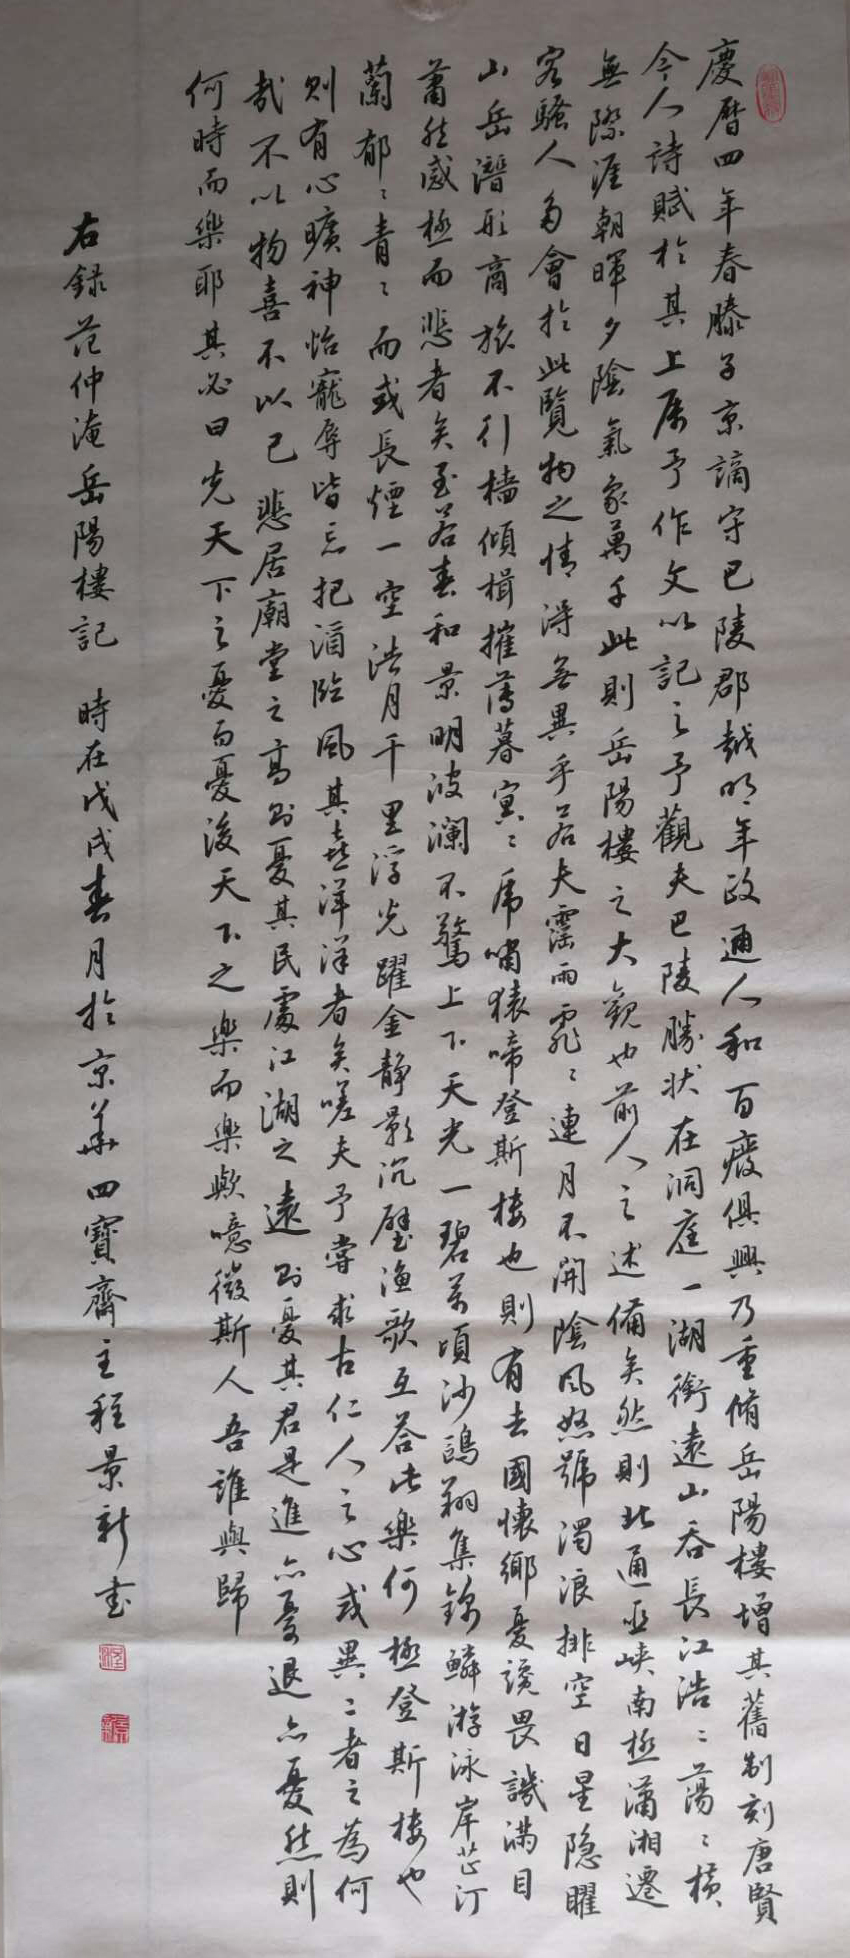 慶曆四年春滕子京謫守巴陵郡越明年政通人和百癈俱興乃重脩岳陽樓增其舊制刻唐賢
今人詩賦於其上屬予作文以記之予觀夫巴陵勝狀在洞庭一湖銜遠山吞長江浩〻蕩〻橫
無際涯朝暉夕陰氣象萬千此則岳陽樓之大觀也前人之述備矣然則北通巫峽南極瀟湘遷
客騷人多會於此覽物之情得無異乎若夫霪雨霏〻連月不開陰風怒號濁浪排空日星隱曜
山岳潛形商旅不行檣傾楫摧薄暮冥〻虎嘯猿啼登斯樓也則有去國懷鄉憂讒畏譏滿目
蕭然感極而悲者矣至若春和景明波瀾不驚上下天光一碧萬頃沙鷗翔集錦鱗游泳岸芷汀
蘭郁〻青〻而或長煙一空浩月千里浮光躍金靜影沉璧漁歌互荅此樂何極登斯樓也
則有心曠神怡寵辱皆忘把酒臨風其喜洋洋者矣嗟夫予嘗求古仁人之心或異二者之為何
哉不以物喜不以己悲居廟堂之高則憂其民處江湖之遠則憂其君是進亦憂退亦憂然則
何時而樂耶其必曰先天下之憂而憂後天下之樂而樂歟噫微斯人吾誰與歸
右錄范仲淹岳陽樓記 時在戊戌春月於京華四寶齋主程景新書